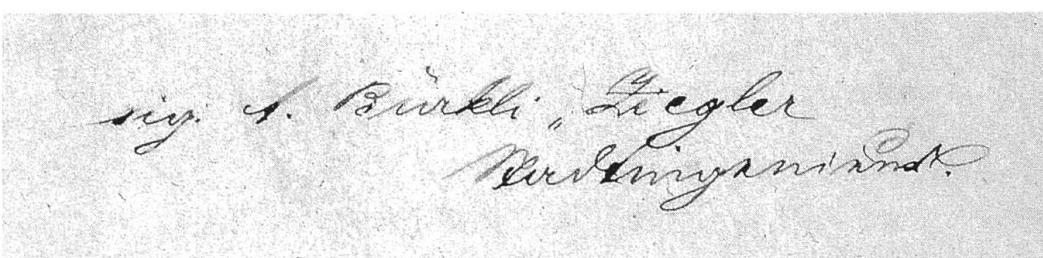 sig. A. Bürkli „ Ziegler
Stadtingenieur.